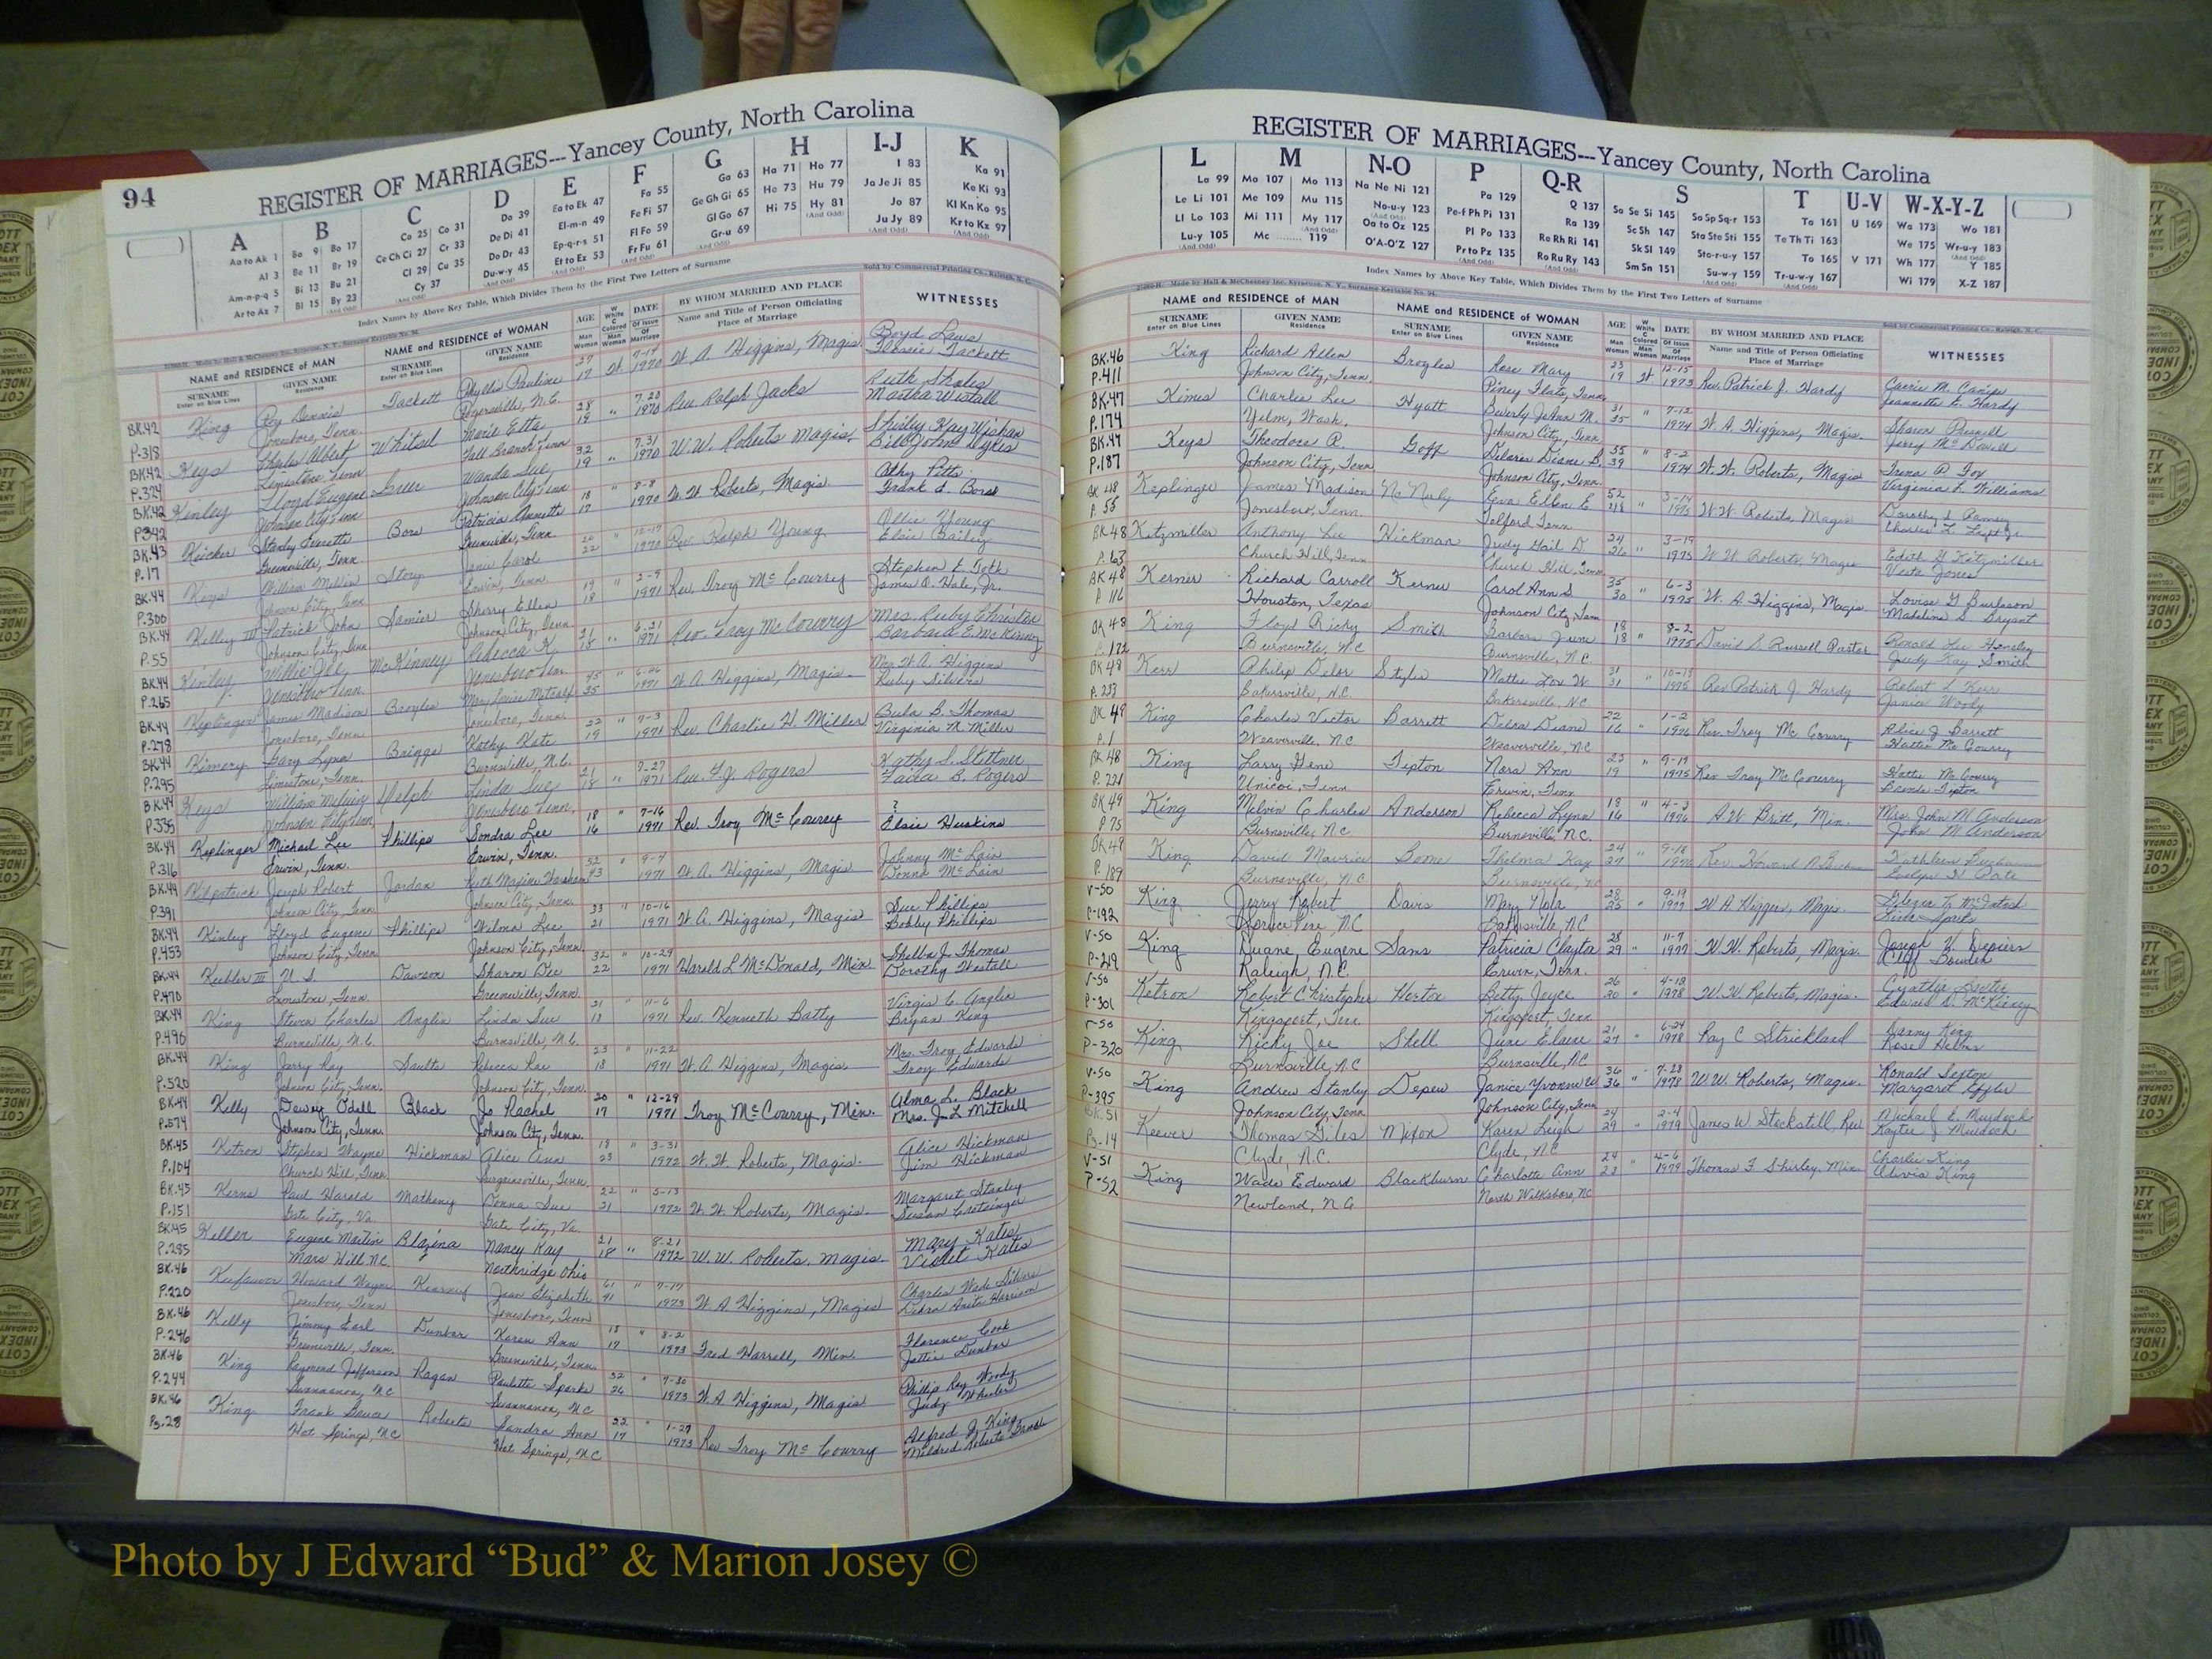 94
REGISTER OF MARRIAGES---Yancey County, North Carolina
A B C D E F G H I-J K
Aa to Ak 1 Ba 9 Bo 17 Ca 25 Co 31 Da 39 Ea to Ek 47 Fa 55 Ga 63 Ha 71 Ho 77 I 83 Ka 91
Al 3 Be 11 Br 19 Ce Ch Ci 27 Cr 33 De Di 41 El-m-n 49 Fe Fi 57 Ge Gh Gi 65 He 73 Hu 79 Ja Je Ji 85 Ke Ki 93
Am-n-p-q 5 Bi 13 Bu 21 Cl 29 Cu 35 Do Dr 43 Ep-q-r-s 51 Fl Fo 59 Gl Go 67 Hi 75 Hy 81 Jo 87 Kl Kn Ko 95
Ar to Az 7 Bl 15 By 23 Cy 37 Du-w-y 45 Et to Ez 53 Fr Fu 61 Gr-u 69 Ju Jy 89 Kr to Kz 97
Index Names by Above Key Table, Which Divides Them by the First Two Letters of Surname
Sold by Commercial Printing Co., Raleigh, N. C.
NAME and RESIDENCE OF MAN NAME and RESIDENCE of WOMAN AGE DATE BY WHOM MARRIED AND PLACE WITNESSES
SURNAME Enter on Blue Lines GIVEN NAME Residence SURNAME Enter on Blue Lines GIVEN NAME Residence Man Woman Of Issue Of Marriage Name and Title of Person Officiating Place of Marriage
BK.42 King Roy Dennis Tackett Phyllis Pauline 27 W. 7-14 W. A. Higgins, Magis. Boyd Laws
P.318 Jonesboro, Tenn. Rogersville, N.C. 17 1970 Flossie Tackett
BK.42 Keys Charles Albert Whitsel Marie Etta 28 " 7-20 Rev. Ralph Jacks Ruth Sholes
P.324 Limestone, Tenn Fall Branch, Tenn 19 1970 Martha Westall
BK.42 Kinley Lloyd Eugene Greer Wanda Sue 32 " 7.31 W.W. Roberts Magis. Shirley Kay
P.342 Johnson City, Tenn Johnson City, Tenn 19 1970
BK.43 Stanley Everette Patricia Annette 18 " 8-8 W. W. Roberts, Magis.
P.17 Greeneville, Tenn. Greeneville, Tenn 17 1970 Frank
BK.44 Keys William Melvin Story Jane Carol 22 1970 Rev. Ralph Young Ollie Young
P.300 Johnson City, Tenn Erwin, Tenn. Elsie Bailey
BK.44 Kelley III Patrick John Sherry Ellen 19 " 2-9 Rev. Troy McCourry Stephen
P.55 Johnson City, Tenn Johnson City, Tenn 18 1971 James O. Hale, Jr.
BK.44 Kinley Willie Joe McKinney Rebecca K. 21 " 6-21 Rev. Troy McCourry Mrs. Ruby Christon
P.265 Jonesboro Tenn. Jonesboro Tenn. 18 1971 Barbara E. McKinney
BK.44 Keplinger James Madison Broyles 45 " W. A. Higgins, Magis. Mrs. W. A. Higgins
P.278 Jonesboro, Tenn. Jonesboro, Tenn. 35 1971 Ruby Silvers
BK.44 Kimery Gary Lynn Briggs Kathy Kate 22 " 7-3 Rev. Charlie H. Miller Beula B. Thomas
P.295 Limestone, Tenn. Burnsville, N.C. 19 1971 Virginia M. Miller
BK.44 Keys William Melvin Delph Linda Sue 21 " 7-27 Rev. F.J. Rogers Kathy S. Stettner
P.335 Johnson City, Tenn Jonesboro Tenn. 18 1971 B. Rogers
BK.44 Keplinger Michael Lee Phillips Sondra Lee 18 " 7-16 Rev. Troy McCourry ?
P.316 Erwin, Tenn. Erwin, Tenn. 16 1971 Elsie Huskins
BK.44 Kilpatrick Joseph Robert Jordan Ruth Maxine 52 " 9-4 W. A. Higgins, Magis Johnny McLain
P.391 Johnson City, Tenn Johnson City, Tenn. 43 1971 Donna McLain
BK.44 Kinley Floyd Eugene Phillips Wilma Lee 33 " 10-16 W. A. Higgins, Magis Sue Phillips
P.453 Johnson City, Tenn Johnson City, Tenn. 21 1971 Bobby Phillips
BK.44 Keebler III W. S. Dawson Sharon Dee 32 " 10-29 Harold L McDonald, Min Shelba J. Thomas
P.470 Limestone, Tenn. Greeneville, Tenn. 22 1971 Dorothy Westall
BK.44 King Steven Charles Anglin Linda Sue 21 " 11-6 Rev. Kenneth Batty Virgis C. Anglin
P.496 Burnsville, N.C. Burnsville, N.C. 18 1971 Bryan King
BK.44 King Jerry Ray Saults Rebecca Rae 23 " 11-22 W. A. Higgins, Magis Mrs. Troy Edwards
P.520 Johnson City, Tenn. Johnson City, Tenn. 18 1971 Troy Edwards
BK.44 Kelly Dewey Odell Black Jo Rachel 20 " 12-29 Troy McCourry, Min. Alma L. Black
P.574 Johnson City, Tenn. Johnson City, Tenn. 17 1971 Mrs. J. L. Mitchell
BK.45 Ketron Stephen Wayne Hickman Alice Ann 18 " 3-31 W. W. Roberts, Magis. Alice Hickman
P.104 Church Hill, Tenn Surgoinsville, Tenn. 23 1972 Jim Hickman
BK.45 Kerns Paul Harold Matheny Donna Sue 22 " 5-13 W. W. Roberts, Magis. Margaret Stanley
P.151 Gate City, Va. Gate City, Va. 21 1972 Susan Cretsinger
BK.45 Keller Eugene Martin Blazina Nancy Kay 21 " 8-21 W.W. Roberts, Magis. Mary Kates
P.285 Mars Hill NC. Northridge Ohio 18 1972 Violet Kates
BK.46 Keefauver Howard Wayne Kearney Jean Elizabeth 61 " 7-17 W. A. Higgins, Magis Charles Wade Silvers
P.220 Jonesboro, Tenn Jonesboro, Tenn 41 1973 Debra Anita Harrison
BK.46 Kelly Jimmy Earl Dunbar Karen Ann 18 " 8-2 Fred Harrell, Min. Florence Cook
P.246 Greeneville, Tenn. Greeneville, Tenn. 17 1973 Jettie Dunbar
BK.46 King Raymond Jefferson Ragan Paulette Sparks 32 " 7-30 W. A. Higgins, Magis Phillip Ray Woody
P.244 Swannanoa, NC Swannanoa, NC 26 1973 Judy Wheeler
BK.46 King Frank Bruce Roberts Sandra Ann 22 " 1-27 Rev Troy McCourry Alfred J. King
Pg.28 Hot Springs, NC Hot Springs, NC 17 1973 Mildred Roberts
REGISTER OF MARRIAGES---Yancey County, North Carolina
L M N-O P Q-R S T U-V W-X-Y-Z
La 99 Ma 107 Mo 113 Na Ne Ni 121 Pa 129 Q 137 Sa Se Si 145 Sa Sp Sq-r 153 Ta 161 U 169 Wa 173 Wo 181
Le Li 101 Me 109 Mu 115 No-u-y 123 Pe-f Ph Pi 131 Ra 139 Sc Sh 147 Sta Ste Sti 155 Te Th Ti 163 We 175 Wr-u-y 183
Ll Lo 103 Mi 111 My 117 Oa to Oz 125 Pl Po 133 Re Rh Ri 141 Sk Sl 149 Sto-r-u-y 157 To 165 V 171 Wh 177 Y 185
Lu-y 105 Mc ........ 119 O'A-O'Z 127 Pr to Pz 135 Ro Ru Ry 143 Sm Sn 151 Su-w-y 159 Tr-u-w-y 167 Wi 179 X-Z 187
Index Names by Above Key Table, Which Divides Them by the First Two Letters of Surname
NAME and RESIDENCE OF MAN NAME and RESIDENCE OF WOMAN AGE DATE BY WHOM MARRIED AND PLACE WITNESSES
SURNAME Enter on Blue Lines GIVEN NAME Residence SURNAME Enter on Blue Lines GIVEN NAME Residence Man Woman Of Issue Of Marriage Name and Title of Person Officiating Place of Marriage
BK.46 King Richard Allen Broyles Rose Mary 23 W. 12-15 Rev. Patrick J. Hardy Carrie M. Canipe
P.411 Johnson City, Tenn. Piney Flats, Tenn. 19 1973 Jeannette E. Hardy
BK.47 Kimes Charles Lee Hyatt Beverly JoAnn M. 31 " 7-12 W. A. Higgins, Magis. Sharon Russell
P.174 Yelm, Wash. Johnson City, Tenn. 35 1974 Jerry McDowell
BK.47 Keys Theodore R. Goff Delores Diane B. 55 " 8-2 W. W. Roberts, Magis Trena P. Fox
P.187 Johnson City, Tenn. Johnson City, Tenn. 39 1974 Virginia L. Williams
BK 48 Keplinger James Madison McNeely Eva Ellen E 52 " 3-14 W.W. Roberts, Magis Dorothy S Ramsey
P. 55 Jonesboro, Tenn. Telford Tenn. 48 1975 Charles L.
BK 48 Kitzmiller Anthony Lee Hickman Judy Gail D. 24 " 3-19 W W Roberts, Magis Edith G Kitzmiller
P.63 Church Hill, Tenn Church Hill, Tenn 26 1975 Veeta Jones
BK 48 Kerner Richard Carroll Kerner Carol Ann S 35 " 6-3 W. A Higgins, Magis Louise G Burleson
P. 116 Houston, Texas Johnson City, Tenn 30 1975 Madeline S Bryant
BK 48 King Floyd Ricky Smith Barbara June 18 " 8-2 David S. Russell Pastor Ronald Lee Hensley
P.172 Burnsville, N.C Burnsville, N.C. 18 1975 Judy Kay Smith
BK 48 Kerr Philip Delor Styles Mattie Lou W 31 " 10-13 Rev. Patrick J. Hardy Robert L Kerr
P.253 Bakersville, N.C. Bakersville, N.C. 31 1975 Janice Woody
BK 49 King Charles Victor Barrett Debra Diane 22 " 1-2 Rev. Troy McCourry Alice J Barrett
P.1 Weaverville, N.C. Weaverville, N.C. 16 1976 Hattie McCourry
BK 48 King Larry Gene Tipton Nora Ann 23 " 9-19 Rev Troy McCourry Hattie McCourry
P. 231 Unicoi, Tenn Erwin, Tenn 19 1975 Tipton
BK 49 King Melvin Charles Anderson Rebecca Lynn 18 " 4-3 A.W. Britt, Min. Mrs. John M. Anderson
P 75 Burnsville, N.C Burnsville, N.C. 16 1976 John M Anderson
BK 49 King David Maurice Boone Thelma Kay 24 " 9-18 Rev. Howard Kathleen
P. 189 Burnsville, N.C Burnsville, N.C 27 1976 Evelyn H Pate
V-50 King Jerry Robert Davis Mary Nola 28 " 9-19 W. A Higgins, Magis.
P-192 Spruce Pine, N.C Bakersville N.C 25 1977
V-50 King Duane, Eugene Sams Patricia Clayton 28 " 11-7 W.W. Roberts, Magis. Joseph
P-219 Raleigh, N.C. Erwin, Tenn. 29 1977 Cliff Bowen
V-50 Ketron Robert Christopher Horton Betty Joyce 26 " 4-18 W.W. Roberts, Magis. Cynthia
P-301 Kingsport, Tenn. Kingsport, Tenn. 20 1978 Edward D. McKinney
V-50 King Ricky Joe Shell June Elaine 21 " 6-24 Ray C Strickland Danny King
P-320 Burnsville, N.C Burnsville, N.C 27 1978 Rose Helms
V-50 King Andrew Stanley Depew Janice Yvonne W 36 " 7-28 W.W. Roberts, Magis. Ronald Sexton
P-395 Johnson City, Tenn Johnson City, Tenn 36 1978 Margaret Effler
BK.51 Keever Thomas Siles Mixon Karen Leigh 24 " 2-4 James W. Stockstill, Rev Michael E. Murdock
Pg.14 Clyde, N.C. Clyde, N.C 29 1979 Kaytee J Murdock
V-51 King Wade Edward Blackburn Charlotte Ann 24 " 4-6 Thomas F. Shirley, Min Charlie King
P-52 Newland, N.C North Wilksboro, NC 23 1979 Alivia King
Photo by J Edward “Bud” & Marion Josey ©